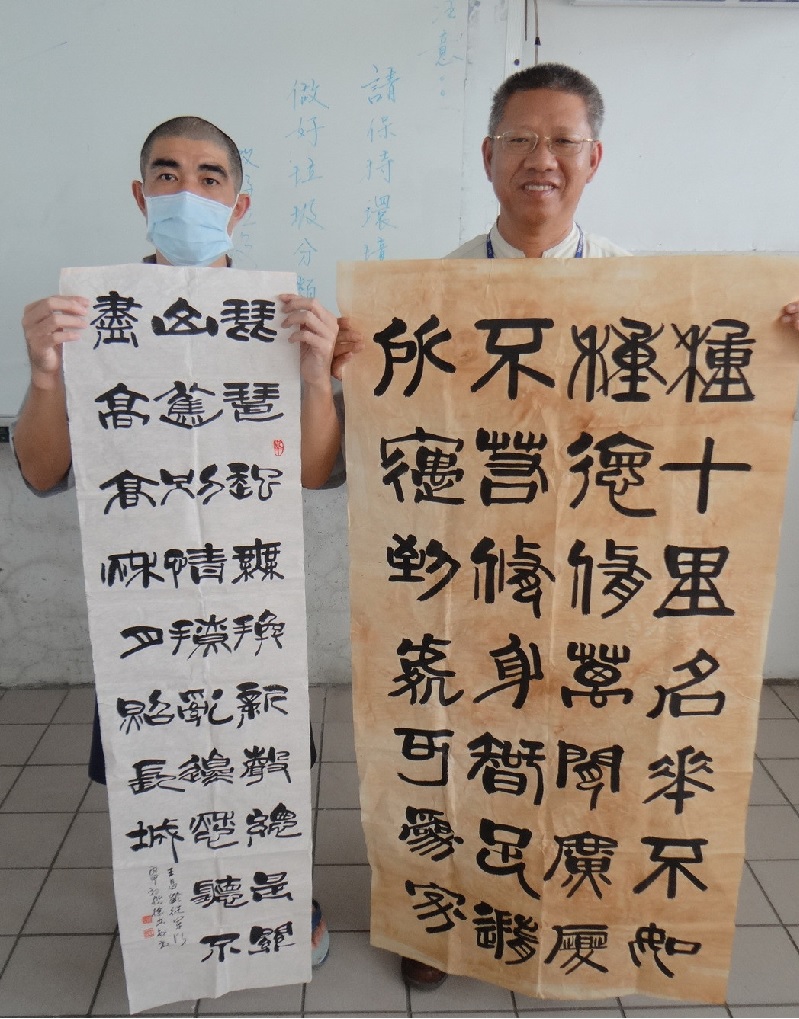 請保持環境
做好垃圾分類
種十里名花不如
種德修萬間廣廈
不若修身智足
所到處可為家
琵琶起舞換新聲總是關
山舊別情撩亂邊愁聽不
盡高高秋月照長城
王昌齡從軍行